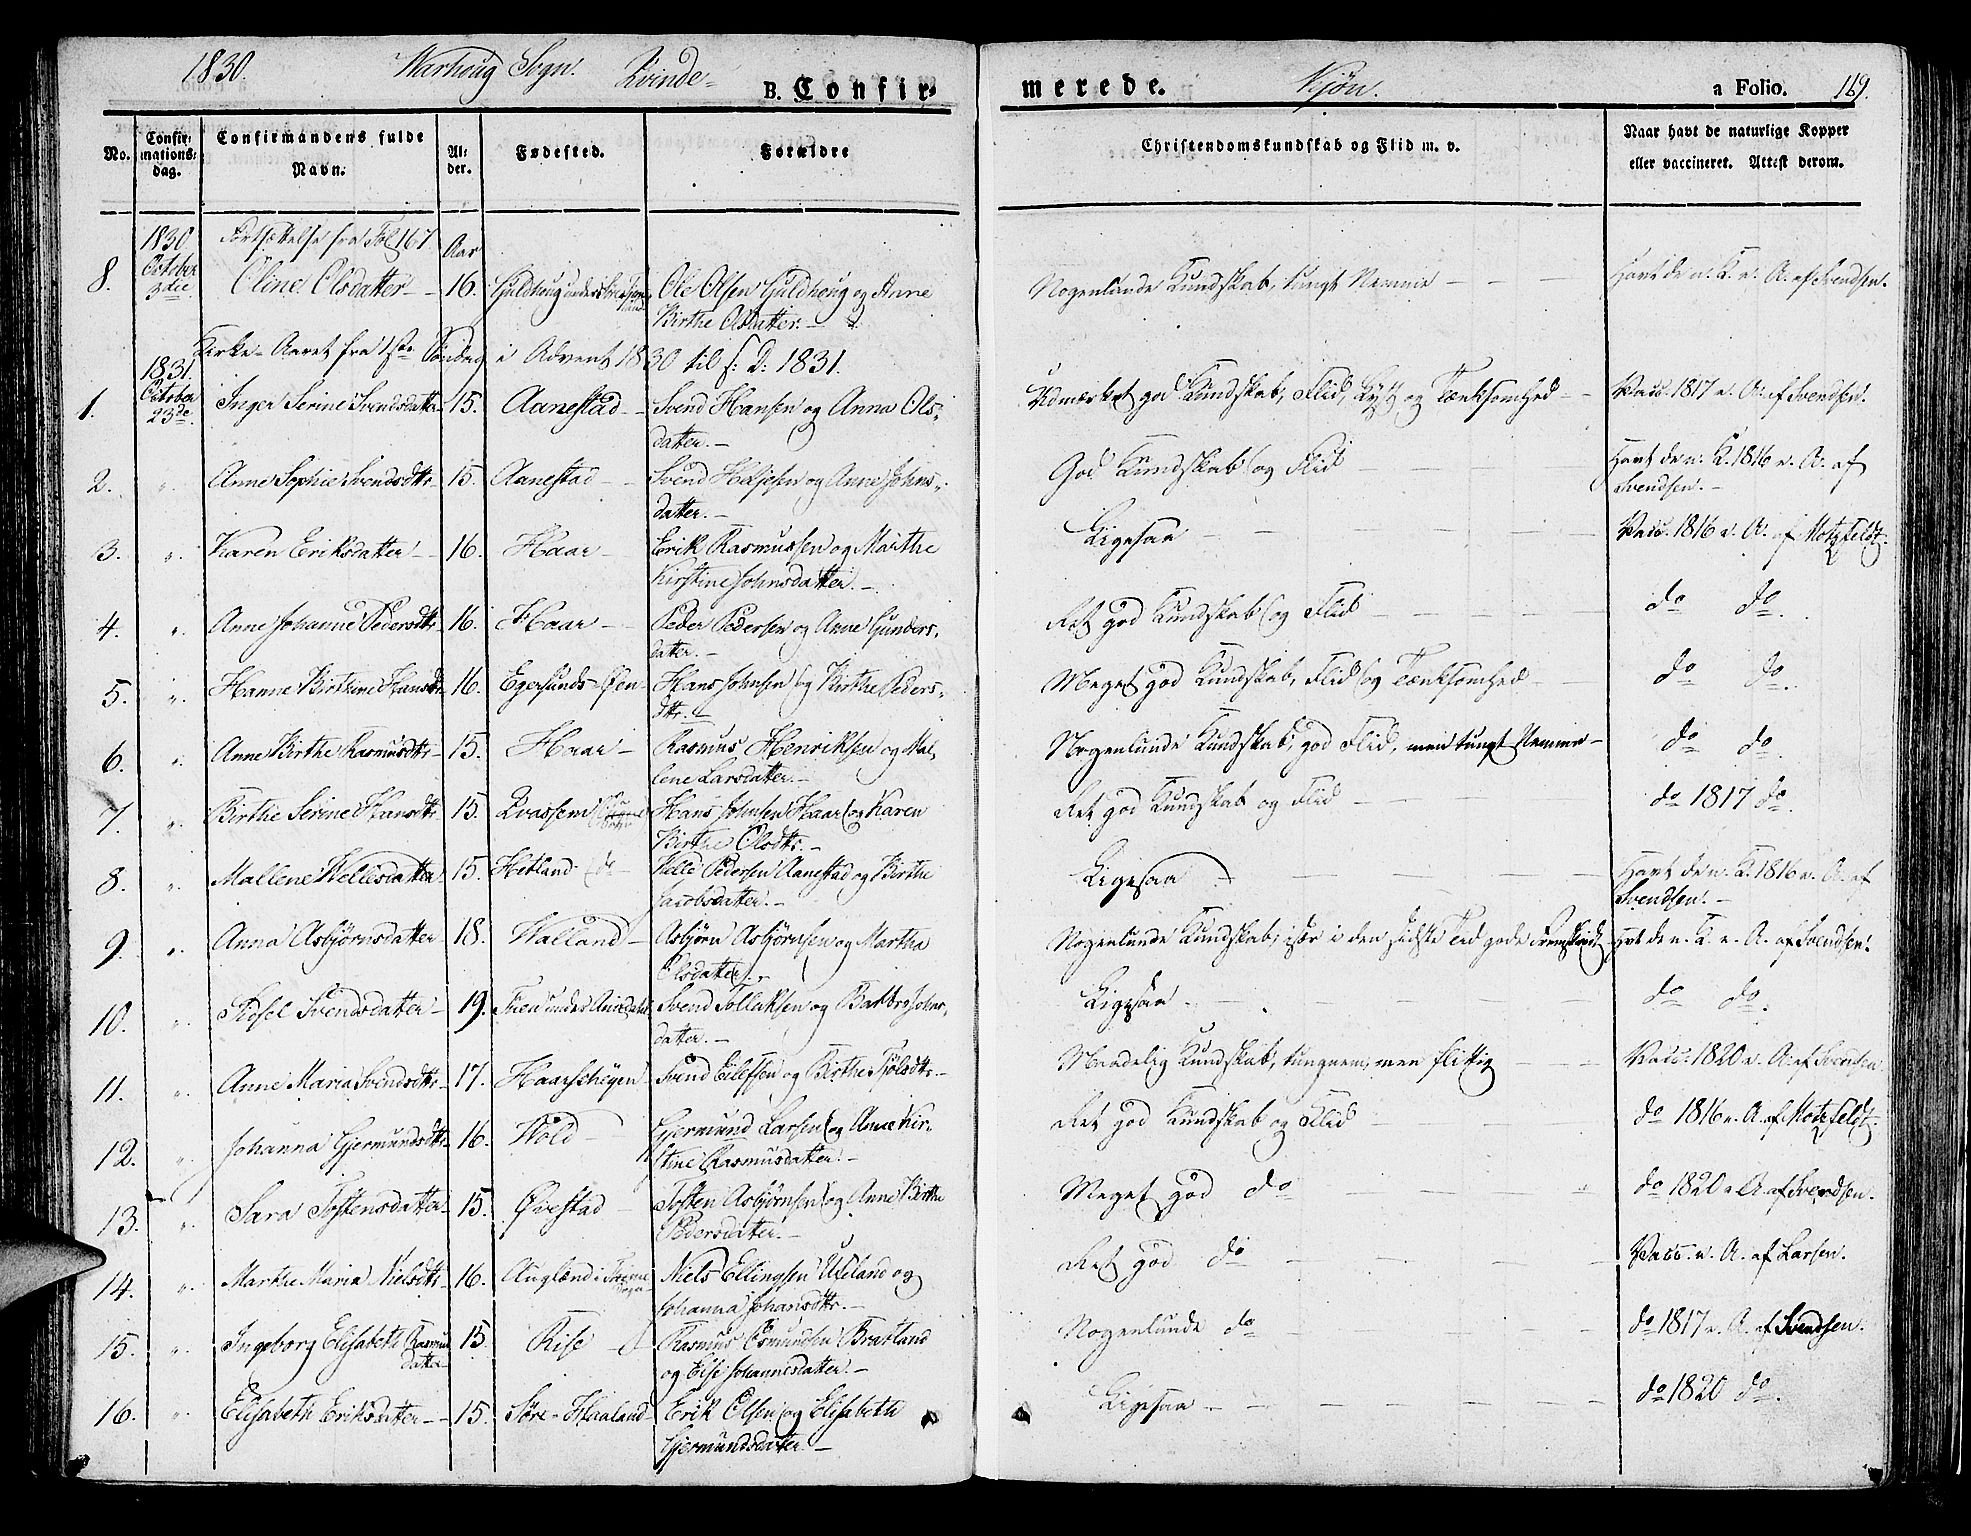 1830. Warhoug Sogn. Qvinde- B. Confirmerede. Kjøn. a Folio. 169.
No. Confirmations-dag. Confirmandens fulde Navn. Alder. Fødested. Forældre Christendomskundskab og Flid m. v. Naar havt de naturlige Kopper eller vaccineret. Attest derom.
1830 Fortsættelse fra Fol 167 Aar
8. October 3die Oline Olsdatter 16. Guldhoug under Ole Olsen Guldhoug og Anne Nogenlunde Kundskab, tungt Nemme Havt de n. K. v. A. af Svendsen.
Birthe Olsdatter.
Kirke-Aaret fra 1ste Søndag i Advent 1830 til s: D: 1831.
1831.
1. October 23de Inger Serine Svendsdatter 15. Aanestad Svend Hansen og Anna Ols- Udmærket god Kundskab, Flid, Lyst og Tænksomhed Vacc. 1817 v. A. af Svendsen.
datter.
2. " Anne Sophie Svendsdttr 15. Aanestad Svend Heljesen og Anne Johns- God Kundskab og Flid Havt de n. K. 1816 v. A. af
datter. Svendsen.
3. " Karen Eriksdatter 16. Haar Erik Rasmussen og Marthe Ligesaa Vacc. 1816 v. A. af Motzfeldt.
Kirstine Johnsdatter.
4. " Anne Johanne Pedersdttr 16. Haar Peder Pedersen og Anne Gunders- Ret god Kundskab og Flid do do.
datter.
5. " Hanne Birthine Hansdtr 16. Egersunds-Øen Hans Johnsen og Birthe Peders- Meget god Kundskab, Flid og Tænksomhed do do.
dttr.
6. " Anne Birthe Rasmusdttr 15. Haar Rasmus Henriksen og Mal- Nogenlunde Kundskab, god Flid, men tungt Nemme do do.
lene Larsdatter.
7. " Birthe Serine Hansdttr 15. Qvassem Hans Johnsen Haar og Karen Ret god Kundskab og Flid do 1817 do.
Birthe Olsdttr.
8. " Mallene Wellesdatter 15. Hetland do Welle Pedersen Aanestad og Birthe Ligesaa Havt de n. K. 1816 v. A. af
Jacobsdatter. Svendsen.
9. " Anna Asbjørnsdatter 18. Walland Asbjørn Asbjørnsen og Martha Nogenlunde Kundskab, især i den sidste Tid gode Fremskridt Havt de n. K. v. A. af Svendsen.
Olsdatter.
10. " Svendsdatter 19. under Svend Tollaksen og Barbro Johns- Ligesaa do do.
datter.
11. " Anne Maria Svendsdttr 17. Svend Eilefsen og Birthe Maadelig Kundskab, tungnem, men flittig Vacc. 1820 v. A. af Svendsen
12. " Johanna Gjermundsdttr 16. Wold Gjermund Larsen og Anne Kir- Ret god Kundskab og Flid do 1816 v. A. af Motzfeldt.
stine Rasmusdatter.
13. " Sara Tostensdatter 15. Øvestad Tosten Asbjørnsen og Anne Birthe Meget god do do 1820 v. A. af Svendsen.
Pedersdatter.
14. " Marthe Maria Nielsdttr 16. Auglænd i Niels Ellingsen Ueland og Ret god do Vacc. v. A. af Larsen.
Johanna Johansdttr.
15. " Ingeborg Elisabeth Rasmus 15 Rise Rasmus Osmundsen Bratland Nogenlunde do do 1817 v. A. af Svendsen.
datter og Else Johannesdatter.
16. " Elisabeth Eriksdatter 15. Søre-Haaland Erik Olsen og Elisabeth Ligesaa do 1820 do.
Gjermundsdatter.